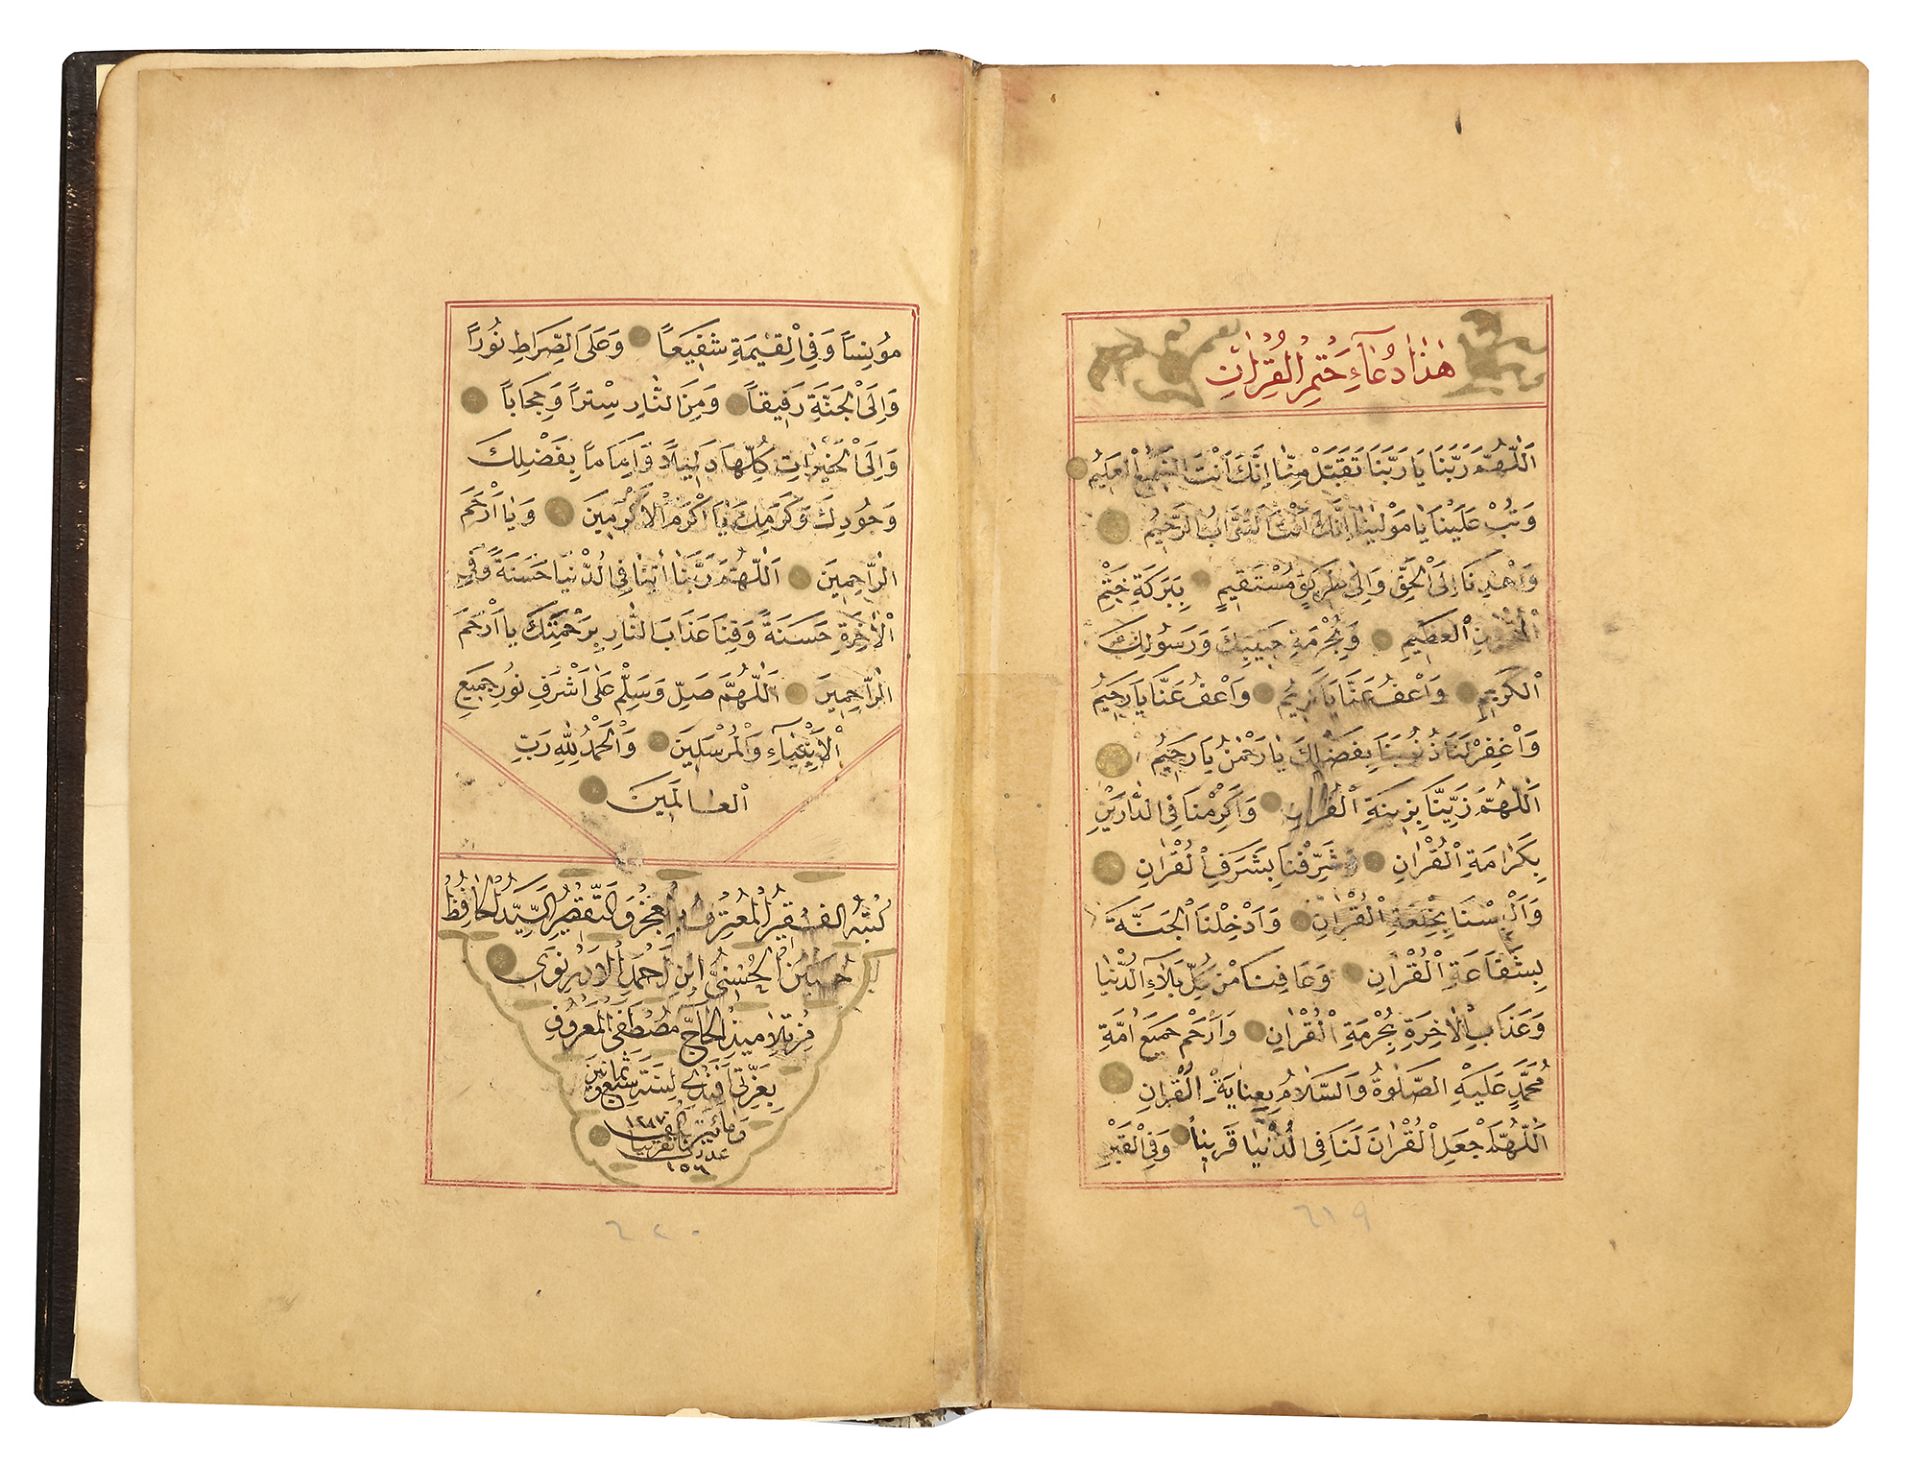 هٰذَا دُعَاءِ خَتْمِ الْقُرْاٰنِ
اَللّٰهُمَّ رَبَّنَا يَا رَبَّنَا تَقَبَّلْ مِنَّا اِنَّكَ اَنْتَ السَّمِيعُ الْعَلِيمُ
وَتُبْ عَلَيْنَا يَا مَوْلٰينَا اِنَّكَ اَنْتَ التَّوَّابُ الرَّحِيمُ
وَاهْدِنَا اِلَى الْحَقِّ وَاِلٰى طَرِيقٍ مُسْتَقِيمٍ بِبَرَكَةِ خَتْمِ
الْقُرْاٰنِ الْعَظِيمِ وَبِحُرْمَةِ حَبِيبِكَ وَرَسُولِكَ
الْكَرِيمِ وَاعْفُ عَنَّا يَا كَرِيمُ وَاعْفُ عَنَّا يَا رَحِيمُ
وَاغْفِرْ لَنَا ذُنُوبَنَا بِفَضْلِكَ يَا رَحْمٰنُ يَا رَحِيمُ
اَللّٰهُمَّ زَيِّنَّا بِزِينَةِ الْقُرْاٰنِ وَاَكْرِمْنَا فِى الدَّارَيْنِ
بِكَرَامَةِ الْقُرْاٰنِ وَشَرِّفْنَا بِشَرَفِ الْقُرْاٰنِ
وَاَلْبِسْنَا بِخِلْعَةِ الْقُرْاٰنِ وَاَدْخِلْنَا الْجَنَّةَ
بِشَفَاعَةِ الْقُرْاٰنِ وَعَافِنَا مِنْ كُلِّ بَلَاءِ الدُّنْيَا
وَعَذَابِ الْاٰخِرَةِ بِحُرْمَةِ الْقُرْاٰنِ وَارْحَمْ جَمِيعَ اُمَّةِ
مُحَمَّدٍ عَلَيْهِ الصَّلٰوةُ وَالسَّلَامُ بِعِنَايَةِ الْقُرْاٰنِ
اَللّٰهُمَّ اجْعَلِ الْقُرْاٰنَ لَنَا فِى الدُّنْيَا قَرِينًا وَفِى الْقَبْرِ
٦١٩
مُونِسًا وَفِى الْقِيٰمَةِ شَفِيعًا وَعَلَى الصِّرَاطِ نُورًا
وَاِلَى الْجَنَّةِ رَفِيقًا وَمِنَ النَّارِ سِتْرًا وَحِجَابًا
وَاِلَى الْخَيْرَاتِ كُلِّهَا دَلِيلًا وَاِمَامًا بِفَضْلِكَ
وَجُودِكَ وَكَرَمِكَ يَا اَكْرَمَ الْاَكْرَمِينَ وَيَا اَرْحَمَ
الرَّاحِمِينَ اَللّٰهُمَّ رَبَّنَا اٰتِنَا فِى الدُّنْيَا حَسَنَةً وَفِى
الْاٰخِرَةِ حَسَنَةً وَقِنَا عَذَابَ النَّارِ بِرَحْمَتِكَ يَا اَرْحَمَ
الرَّاحِمِينَ اَللّٰهُمَّ صَلِّ وَسَلِّمْ عَلٰى اَشْرَفِ نُورِ جَمِيعِ
الْاَنْبِيَاءِ وَالْمُرْسَلِينَ وَالْحَمْدُ لِلّٰهِ رَبِّ
الْعَالَمِينَ
كَتَبَهُ الْفَقِيرُ الْمُعْتَرِفُ بِالْعَجْزِ وَالتَّقْصِيرِ السَّيِّدُ الْحَافِظُ
الْحُسْنِى ابْنِ اَحْمَدَ الْاَدِرْنَوِى
مِنْ تَلَامِيذِ الْحَاجِّ مُصْطَفَى الْمَعْرُوفِ
بِعِزَّتِى اَفَنْدِى لِسَنَةِ سَبْعٍ وَثَمَانِينَ
وَمِائَتَيْنِ وَاَلْف ١٢٨٧
١٥٦
٦٢٠